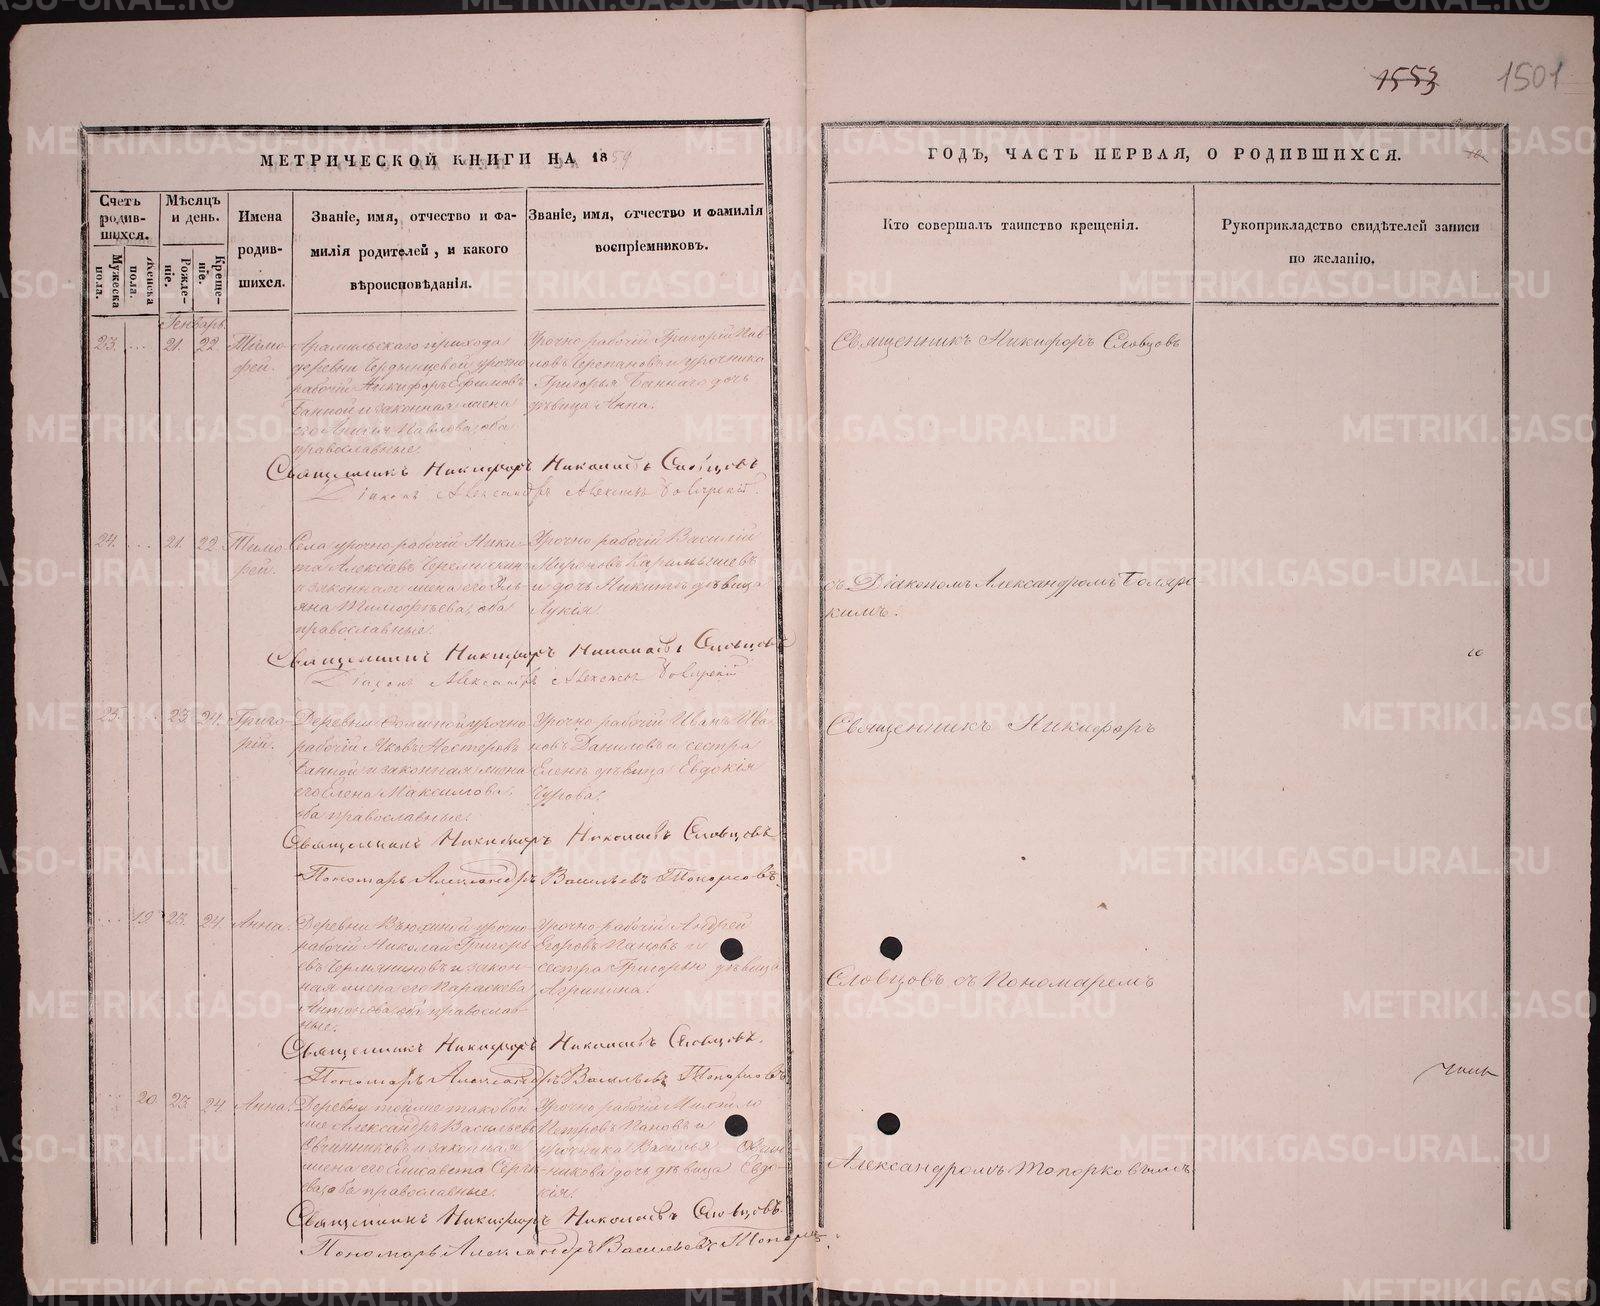 1553 1501
МЕТРИЧЕСКОЙ КНИГИ НА 1859
ГОДЪ, ЧАСТЬ ПЕРВАЯ, О РОДИВШИХСЯ.
Счетъ родив-
шихся.
Мужеска пола.
Женска пола.
Мѣсяцъ
и день.
Рожде-
ніе.
Креще-
ніе.
Имена
родив-
шихся.
Званіе, имя, отчество и фа-
милія родителей, и какого
вѣроисповѣданія.
Званіе, имя, отчество и фамилія
воспріемниковъ.
Кто совершалъ таинство крещенія.
Рукоприкладство свидѣтелей записи
по желанію.
Генварь
23. ... 21. 22. Тимо-
фей.
Арамильскаго прихода
рабочій Никифоръ Ефимовъ
Банной и законная жена
его Павлова, оба
православные.
Урочно рабочій Григорій Пав-
ловъ Черепановъ и урочника
Григорья Баннаго дочь
дѣвица Анна.
Священникъ Никифоръ Словцовъ
Священникъ Никифоръ Николаевъ Словцовъ
Діаконъ Александръ Алексѣевъ
24. ... 21. 22. Тимо-
фей.
Села урочно рабочій Ники-
та Алексѣевъ
и законная жена его Уль-
яна Тимофѣева, оба
православные.
Урочно рабочій Василій
Мироновъ Карамышевъ
и дочь Никиты дѣвица
Лукія.
съ Діакономъ Александромъ Боляр-
кимъ.
Священникъ Никифоръ Николаевъ Словцовъ
Діаконъ Александръ Алексѣевъ
25. ... 23. 24. Григо-
рій.
Деревни урочно
рабочій Яковъ Нестеровъ
Банной и законная жена
его Елена Максимова,
оба православные.
Урочно рабочій Иванъ Ива-
новъ Даниловъ и сестра
Елены дѣвица Евдокія
Чурова.
Священникъ Никифоръ
Священникъ Никифоръ Николаевъ Словцовъ
Пономарь Александръ Васильевъ Топорковъ.
... 19. 23. 24. Анна.
Деревни Вьюхиной урочно-
рабочій Николай Григорь-
евъ и закон-
ная жена его Параскева
Антонова, оба православ-
ные.
Урочно рабочій Андрей
Егоровъ Пановъ и
сестра Григорью дѣвица
Агрипина.
Словцовъ съ Пономаремъ
Священникъ Никифоръ Николаевъ Словцовъ.
Пономарь Александръ Васильевъ Топорковъ
... 20 23. 24. Анна.
Деревни тойже таковой
же Александръ Васильевъ
Овчинниковъ и законная
жена его Елисавета Серге-
ева, оба православные.
Урочно рабочій Михайло
Петровъ Пановъ и
урочника Василья Овчин-
никова дочь дѣвица Евдо-
кія.
Александромъ Топорковымъ
Священникъ Никифоръ Николаевъ Словцовъ.
Пономарь Александръ Васильевъ
METRIKI.GASO-URAL.RU